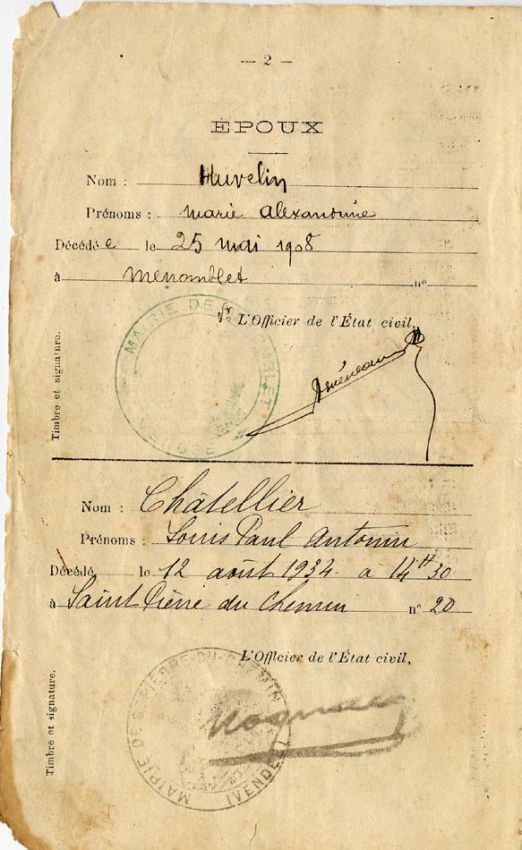 — 2 —
ÉPOUX
Nom : Huvelin
Prénoms : marie alexandrine
Décédée le 25 mai 1908
à menomblet n°
L'Officier de l'État civil,
MAIRIE DE
Timbre et signature.
Nom : Châtellier
Prénoms : Louis Paul Antonin
Décédé le 12 août 1934 à 14 H 30
à Saint Pierre du Chemin n° 20
L'Officier de l'État civil,
MAIRIE DE ST PIERRE-DU-CHEMIN
(VENDÉE)
Timbre et signature.